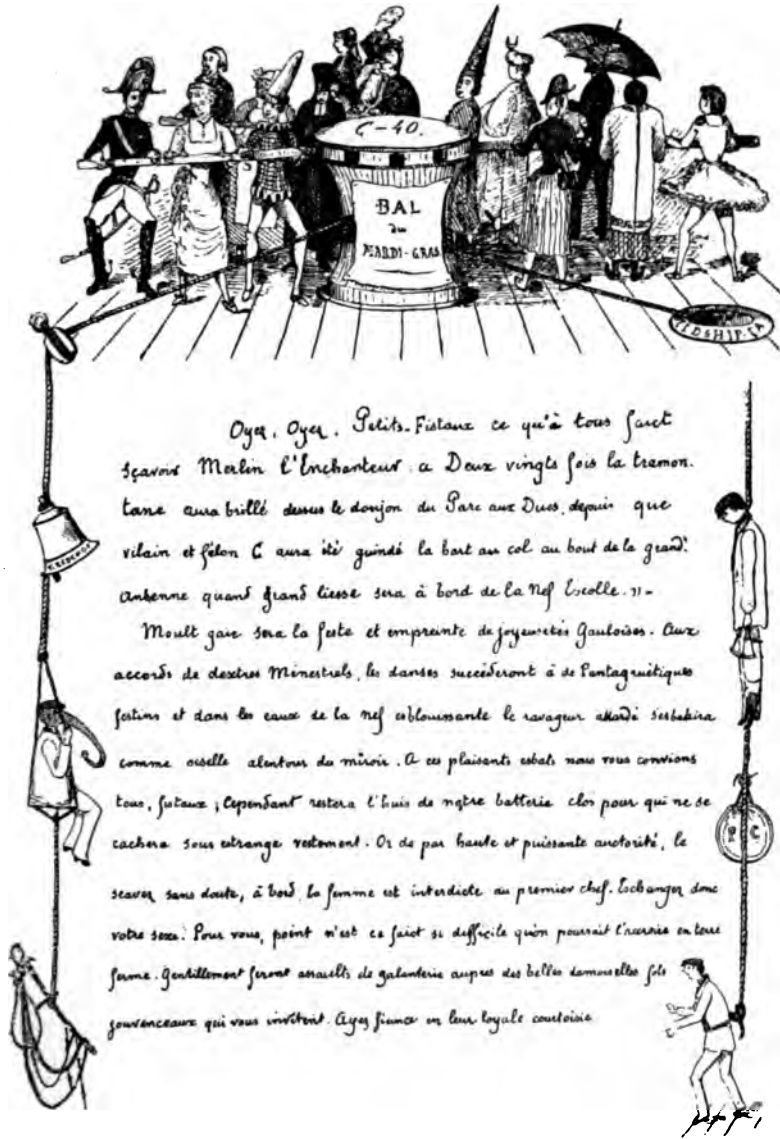 C-40.
BAL
du
MARDI-GRAS
Oyez, Oyez, Petits-Fistaux ce qu'à tous faict
sçavoir Merlin l'Enchanteur a Deux vingts fois la tramon.
tane aura brillé dessus le donjon du Parc aux Ducs, depuis que
vilain et félon C aura été guindé la hart au col au bout de la grand'
antenne quand grand liesse sera à bord de la Nef Escolle.
Moult gaie sera la feste et empreinte de joyeusetés Gauloises. Aux
accords de dextres Ménestrels, les danses succèderont à de Pantagruéliques
festins et dans les eaux de la nef esblouissante le ravageur s'esbahira
comme oiselle alentour du miroir. A ces plaisants esbats nous vous convions
tous, fistaux ; Cependant restera l'huis de notre batterie clos pour qui ne se
cachera sous estrange vestement. Or de par haute et puissante auctorité, le
scavez sans doute, à bord, la femme est interdicte au premier chef. Eschangez donc
votre sexe. Pour vous, point n'est ce faict si difficile qu'on pourrait l'accroire en terre
ferme. Gentillement feront assaults de galanterie aupres des belles damoiselles fols
jouvenceaux qui vous invitent. Ayez fiance en leur loyale courtoisie
P C